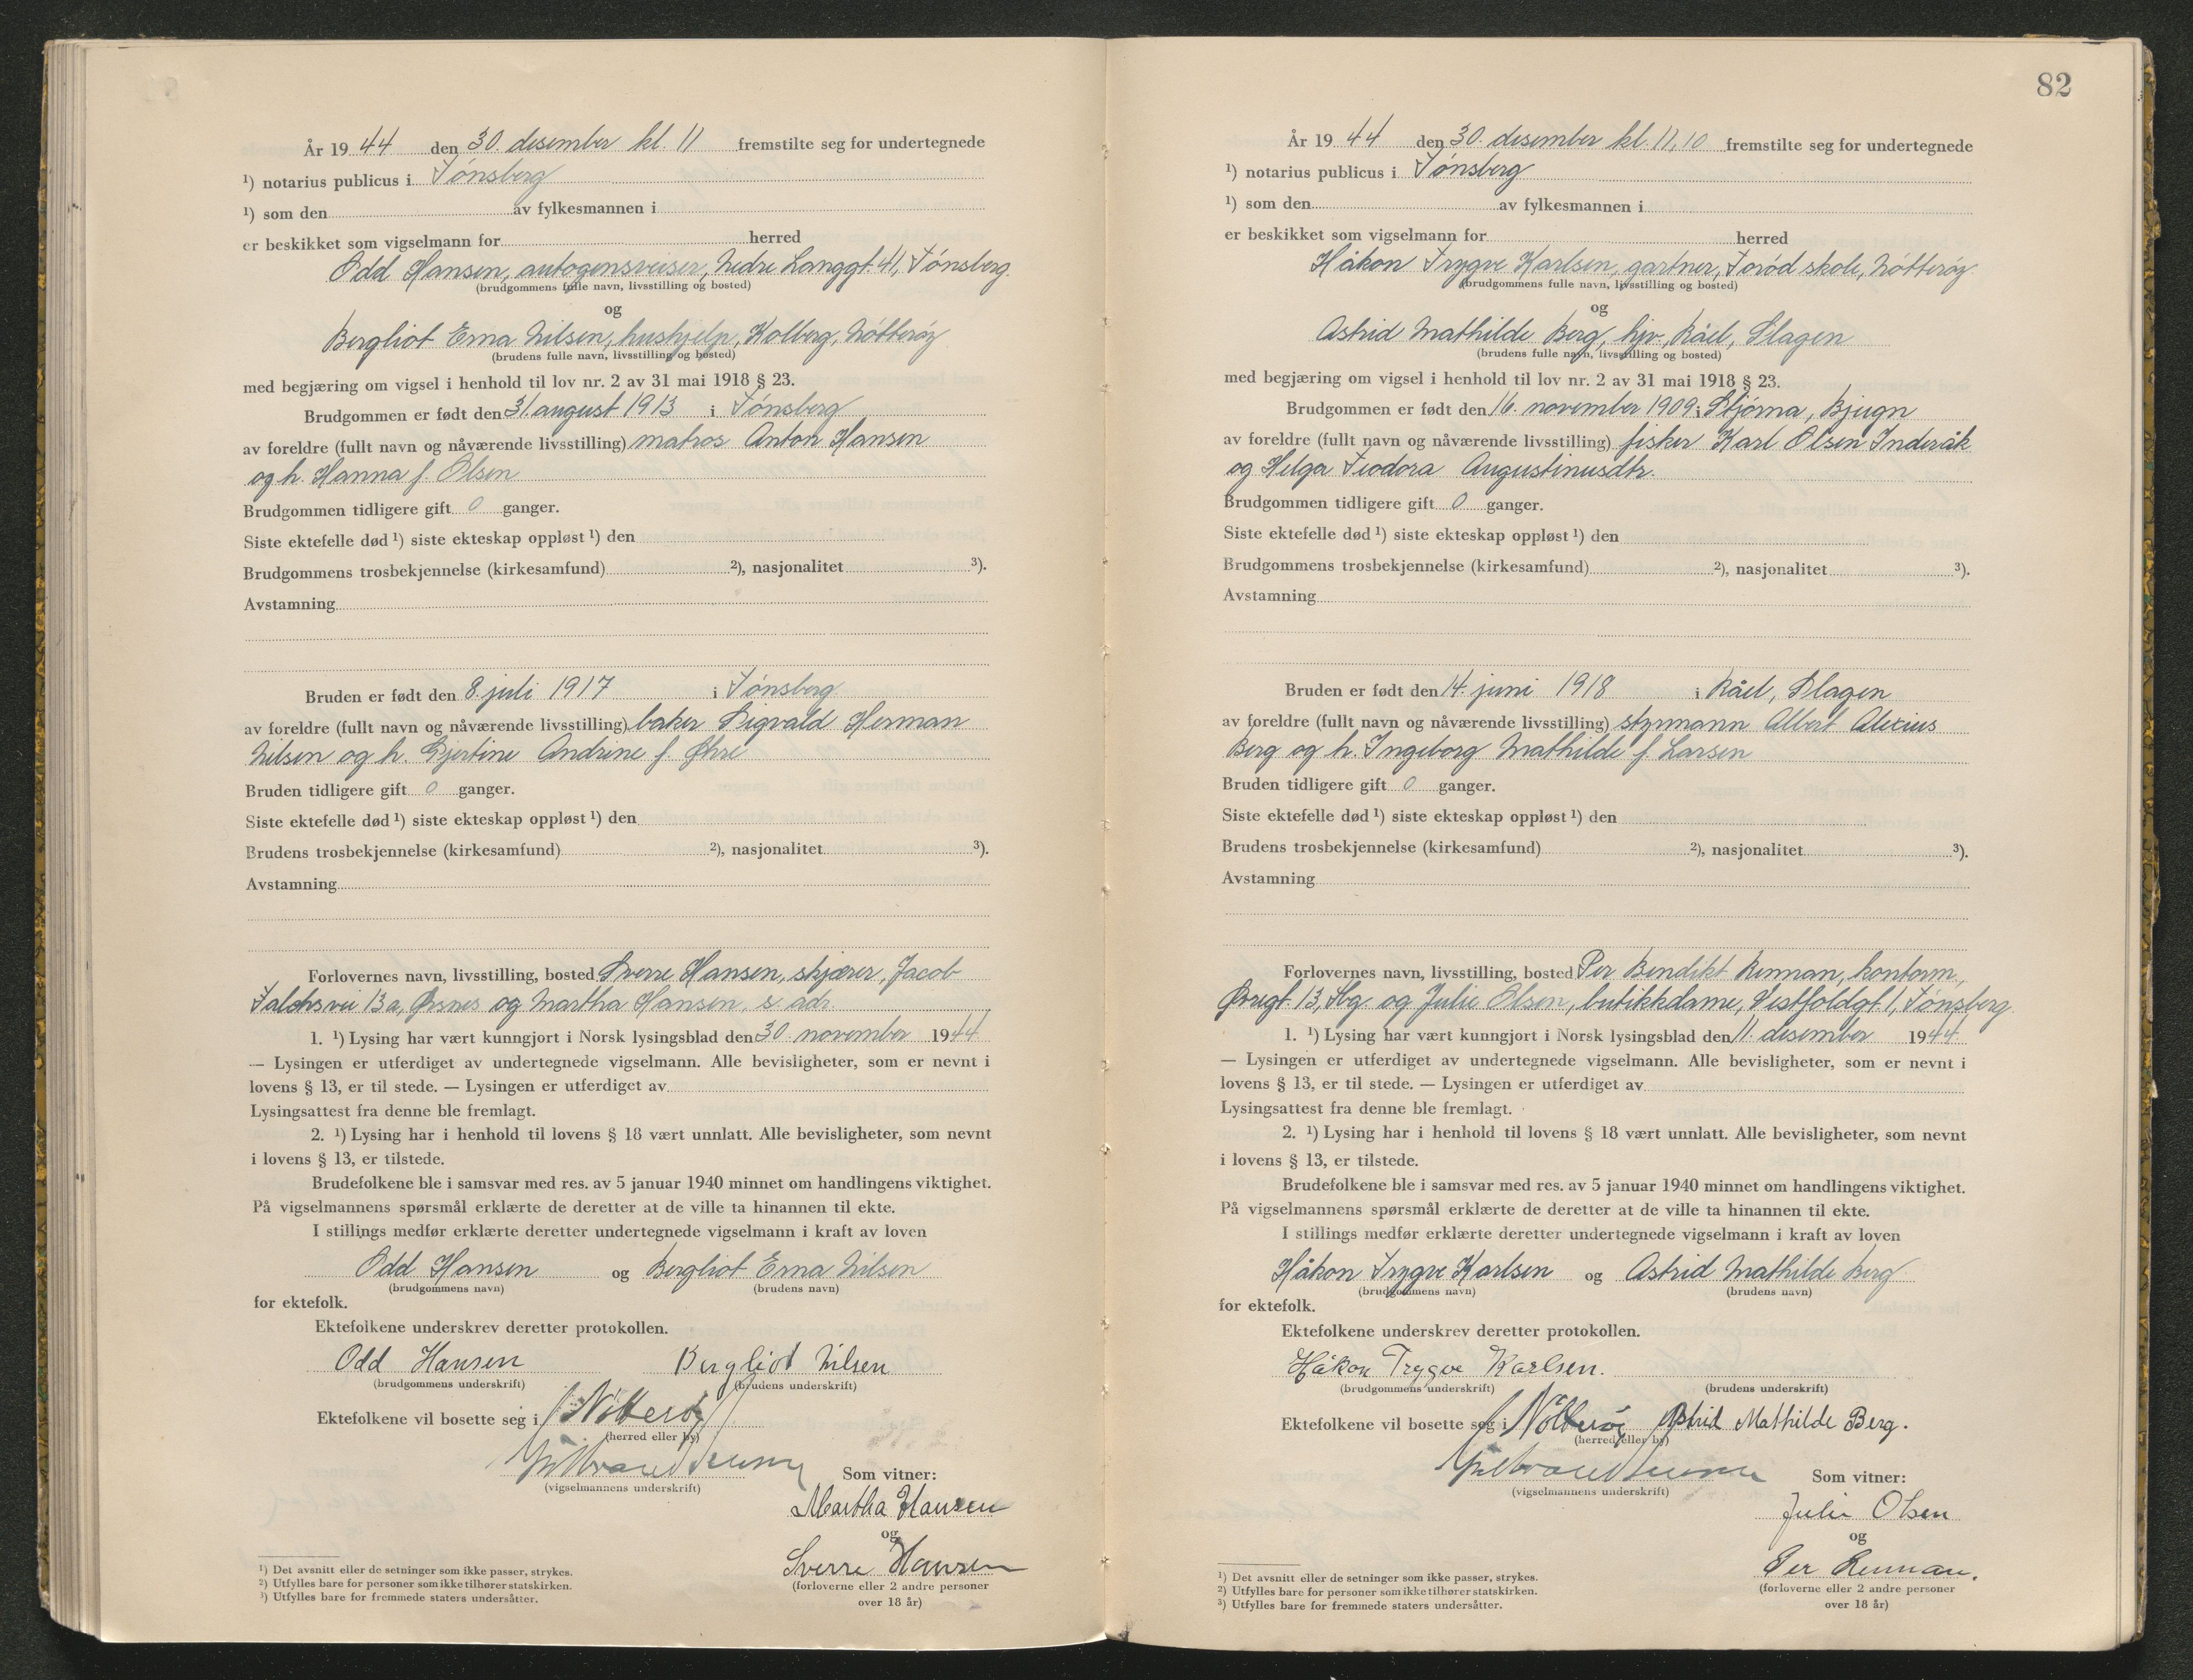 År 19 44 den 30. desember kl. 11 fremstilte seg for undertegnede
¹) notarius publicus i Tønsberg
¹) som den av fylkesmannen i
er beskikket som vigselmann for herred
Odd Hansen, autogensveiser, Nedre Langgt. 41, Tønsberg.
(brudgommens fulle navn, livsstilling og bosted)
og
Bergliot Erna Nilsen, hushjelp, Kolberg, Nøtterøy
(brudens fulle navn, livsstilling og bosted)
med begjæring om vigsel i henhold til lov nr. 2 av 31 mai 1918 § 23.
Brudgommen er født den 31. august 1913 i Tønsberg
av foreldre (fullt navn og nåværende livsstilling) matros Anton Hansen
og h. Hanna f. Olsen
Brudgommen tidligere gift 0 ganger.
Siste ektefelle død ¹) siste ekteskap oppløst ¹) den
Brudgommens trosbekjennelse (kirkesamfund) ²), nasjonalitet ³).
Avstamning
Bruden er født den 8. juli 1917 i Tønsberg
av foreldre (fullt navn og nåværende livsstilling) baker Sigvald Herman
Nilsen og h. Gjertine Andrine f. Øhre
Bruden tidligere gift 0 ganger.
Siste ektefelle død ¹) siste ekteskap oppløst ¹) den
Brudens trosbekjennelse (kirkesamfund) ²), nasjonalitet ³).
Avstamning
Forlovernes navn, livsstilling, bosted Sverre Hansen, skjærer, Jacob
Falchsvei 13a, Ørsnes og Martha Hansen, s. adr.
1. ¹) Lysing har vært kunngjort i Norsk lysingsblad den 30. november 1944
— Lysingen er utferdiget av undertegnede vigselmann. Alle bevisligheter, som er nevnt i
lovens § 13, er til stede. — Lysingen er utferdiget av
Lysingsattest fra denne ble fremlagt.
2. ¹) Lysing har i henhold til lovens § 18 vært unnlatt. Alle bevisligheter, som nevnt
i lovens § 13, er tilstede.
Brudefolkene ble i samsvar med res. av 5 januar 1940 minnet om handlingens viktighet.
På vigselmannens spørsmål erklærte de deretter at de ville ta hinannen til ekte.
I stillings medfør erklærte deretter undertegnede vigselmann i kraft av loven
Odd Hansen og Bergliot Erna Nilsen
(brudgommens navn) (brudens navn)
for ektefolk.
Ektefolkene underskrev deretter protokollen.
Odd Hansen Bergliot Nilsen
(brudgommens underskrift) (brudens underskrift)
Ektefolkene vil bosette seg i Nøtterøy
(herred eller by)
(vigselmannens underskrift)
Som vitner:
Martha Hansen
og
Sverre Hansen
(forloverne eller 2 andre personer
over 18 år)
¹) Det avsnitt eller de setninger som ikke passer, strykes.
²) Utfylles bare for personer som ikke tilhører statskirken.
³) Utfylles bare for fremmede staters undersåtter.
82
År 19 44 den 30. desember kl. 11,10 fremstilte seg for undertegnede
¹) notarius publicus i Tønsberg
¹) som den av fylkesmannen i
er beskikket som vigselmann for herred
Håkon Trygve Karlsen, gartner, Torød skole, Nøtterøy
(brudgommens fulle navn, livsstilling og bosted)
og
Astrid Mathilde Berg, hjv., Råel, Slagen
(brudens fulle navn, livsstilling og bosted)
med begjæring om vigsel i henhold til lov nr. 2 av 31 mai 1918 § 23.
Brudgommen er født den 16. november 1909 i Stjørna, Bjugn
av foreldre (fullt navn og nåværende livsstilling) fisker Karl Olsen Inderåk
og Helga Teodora Augustinusdtr.
Brudgommen tidligere gift 0 ganger.
Siste ektefelle død ¹) siste ekteskap oppløst ¹) den
Brudgommens trosbekjennelse (kirkesamfund) ²), nasjonalitet ³).
Avstamning
Bruden er født den 14. juni 1918 i Råel, Slagen
av foreldre (fullt navn og nåværende livsstilling) styrmann Albert Alexius
Berg og h. Ingeborg Mathilde f. Larsen
Bruden tidligere gift 0 ganger.
Siste ektefelle død ¹) siste ekteskap oppløst ¹) den
Brudens trosbekjennelse (kirkesamfund) ²), nasjonalitet ³).
Avstamning
Forlovernes navn, livsstilling, bosted Per Bendikt Rennan, kontorm.,
13, Tbg. og Julie Olsen, butikkdame, Vestfoldgt. 1, Tønsberg
1. ¹) Lysing har vært kunngjort i Norsk lysingsblad den 11. desember 1944
— Lysingen er utferdiget av undertegnede vigselmann. Alle bevisligheter, som er nevnt i
lovens § 13, er til stede. — Lysingen er utferdiget av
Lysingsattest fra denne ble fremlagt.
2. ¹) Lysing har i henhold til lovens § 18 vært unnlatt. Alle bevisligheter, som nevnt
i lovens § 13, er tilstede.
Brudefolkene ble i samsvar med res. av 5 januar 1940 minnet om handlingens viktighet.
På vigselmannens spørsmål erklærte de deretter at de ville ta hinannen til ekte.
I stillings medfør erklærte deretter undertegnede vigselmann i kraft av loven
Håkon Trygve Karlsen og Astrid Mathilde Berg
(brudgommens navn) (brudens navn)
for ektefolk.
Ektefolkene underskrev deretter protokollen.
Håkon Trygve Karlsen.
(brudgommens underskrift) (brudens underskrift)
Ektefolkene vil bosette seg i Nøtterøy Astrid Mathilde Berg.
(herred eller by)
(vigselmannens underskrift)
Som vitner:
Julie Olsen
og
Per Rennan.
(forloverne eller 2 andre personer
over 18 år)
¹) Det avsnitt eller de setninger som ikke passer, strykes.
²) Utfylles bare for personer som ikke tilhører statskirken.
³) Utfylles bare for fremmede staters undersåtter.